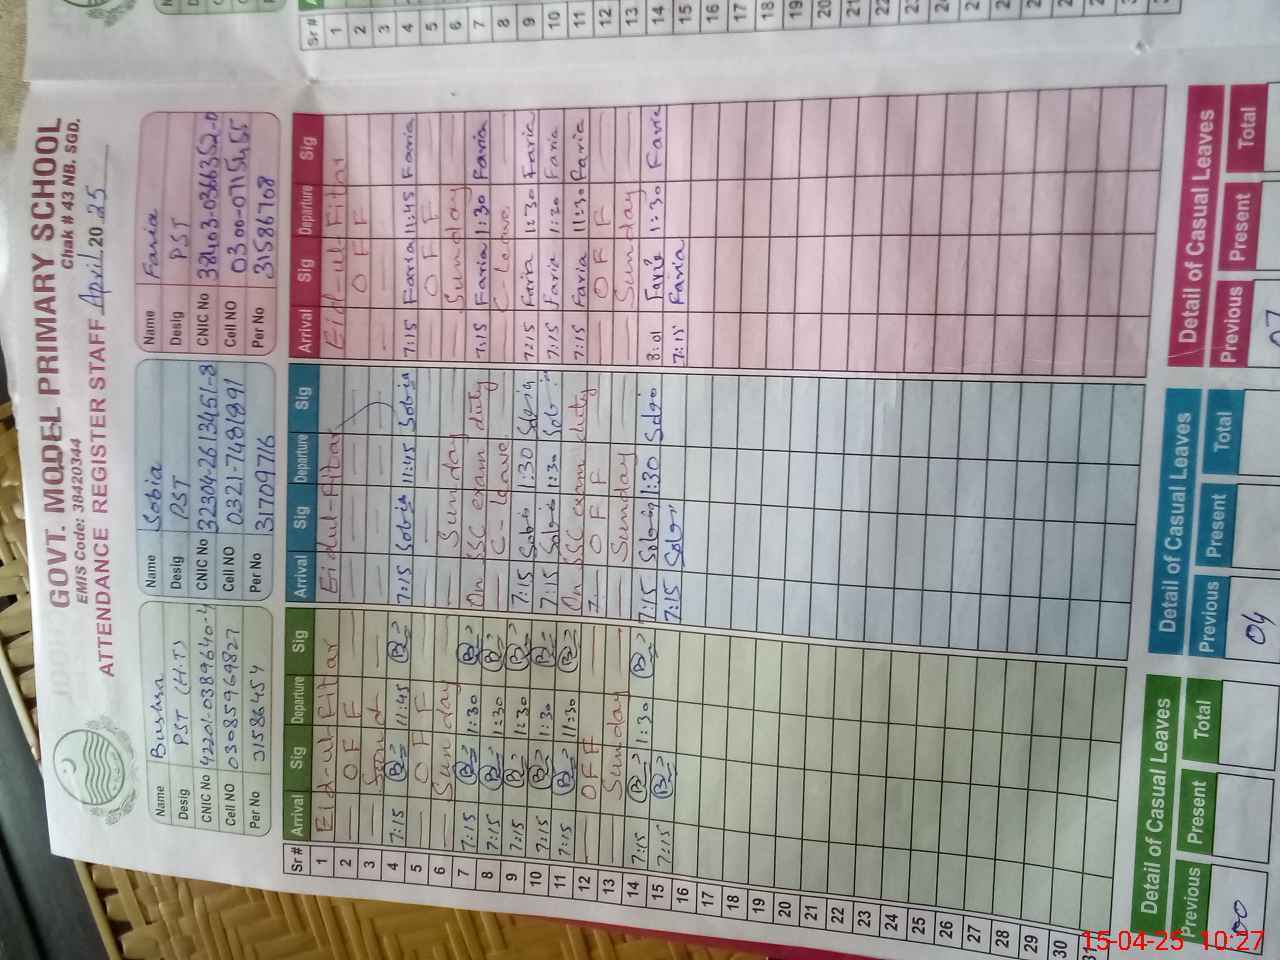 GOVT. MODEL PRIMARY SCHOOL
EMIS Code: 38420344 Chak # 43 NB. SGD.
ATTENDANCE REGISTER STAFF April 20 25
Name Bushra
Desig PST (H.T)
CNIC No 42201-0389640-4
Cell NO 03085969827
Per No 31586454
Name Sobia
Desig PST
CNIC No 32304-2613451-8
Cell NO 0321-7481891
Per No 31709716
Name Faria
Desig PST
CNIC No 38403-0366352-0
Cell NO 0300-0715455
Per No 31586708
Sr # Arrival Sig Departure Sig Arrival Sig Departure Sig Arrival Sig Departure Sig
1 Eid-ul-Fitar Eidul-Fitar Eid-ul-Fitr
2 OFF OFF
3
4 7:15 11:45 7:15 Sobia 11:45 Sobia 7:15 Faria 11:45 Faria
5 OFF OFF
6 Sunday Sunday Sunday
7 7:15 1:30 On SSC exam duty 7:15 Faria 1:30 Faria
8 7:15 1:30 C-leave C-leave
9 7:15 1:30 7:15 Sobia 1:30 Sobia 7:15 Faria 1:30 Faria
10 7:15 1:30 7:15 Sobia 1:30 Sobia 7:15 Faria 1:30 Faria
11 7:15 11:30 On SSC exam duty 7:15 Faria 11:30 Faria
12 OFF OFF OFF
13 Sunday Sunday Sunday
14 7:15 1:30 7:15 Sobia 1:30 Sobia 8:01 Faria 1:30 Faria
15 7:15 7:15 Sobia 7:15 Faria
16
17
18
19
20
21
22
23
24
25
26
27
28
29
30
31
Detail of Casual Leaves
Previous Present Total
00
Detail of Casual Leaves
Previous Present Total
04
Detail of Casual Leaves
Previous Present Total
07
Sr #
1
2
3
4
5
6
7
8
9
10
11
12
13
14
15
16
17
18
19
20
21
22
15-04-25 10:27